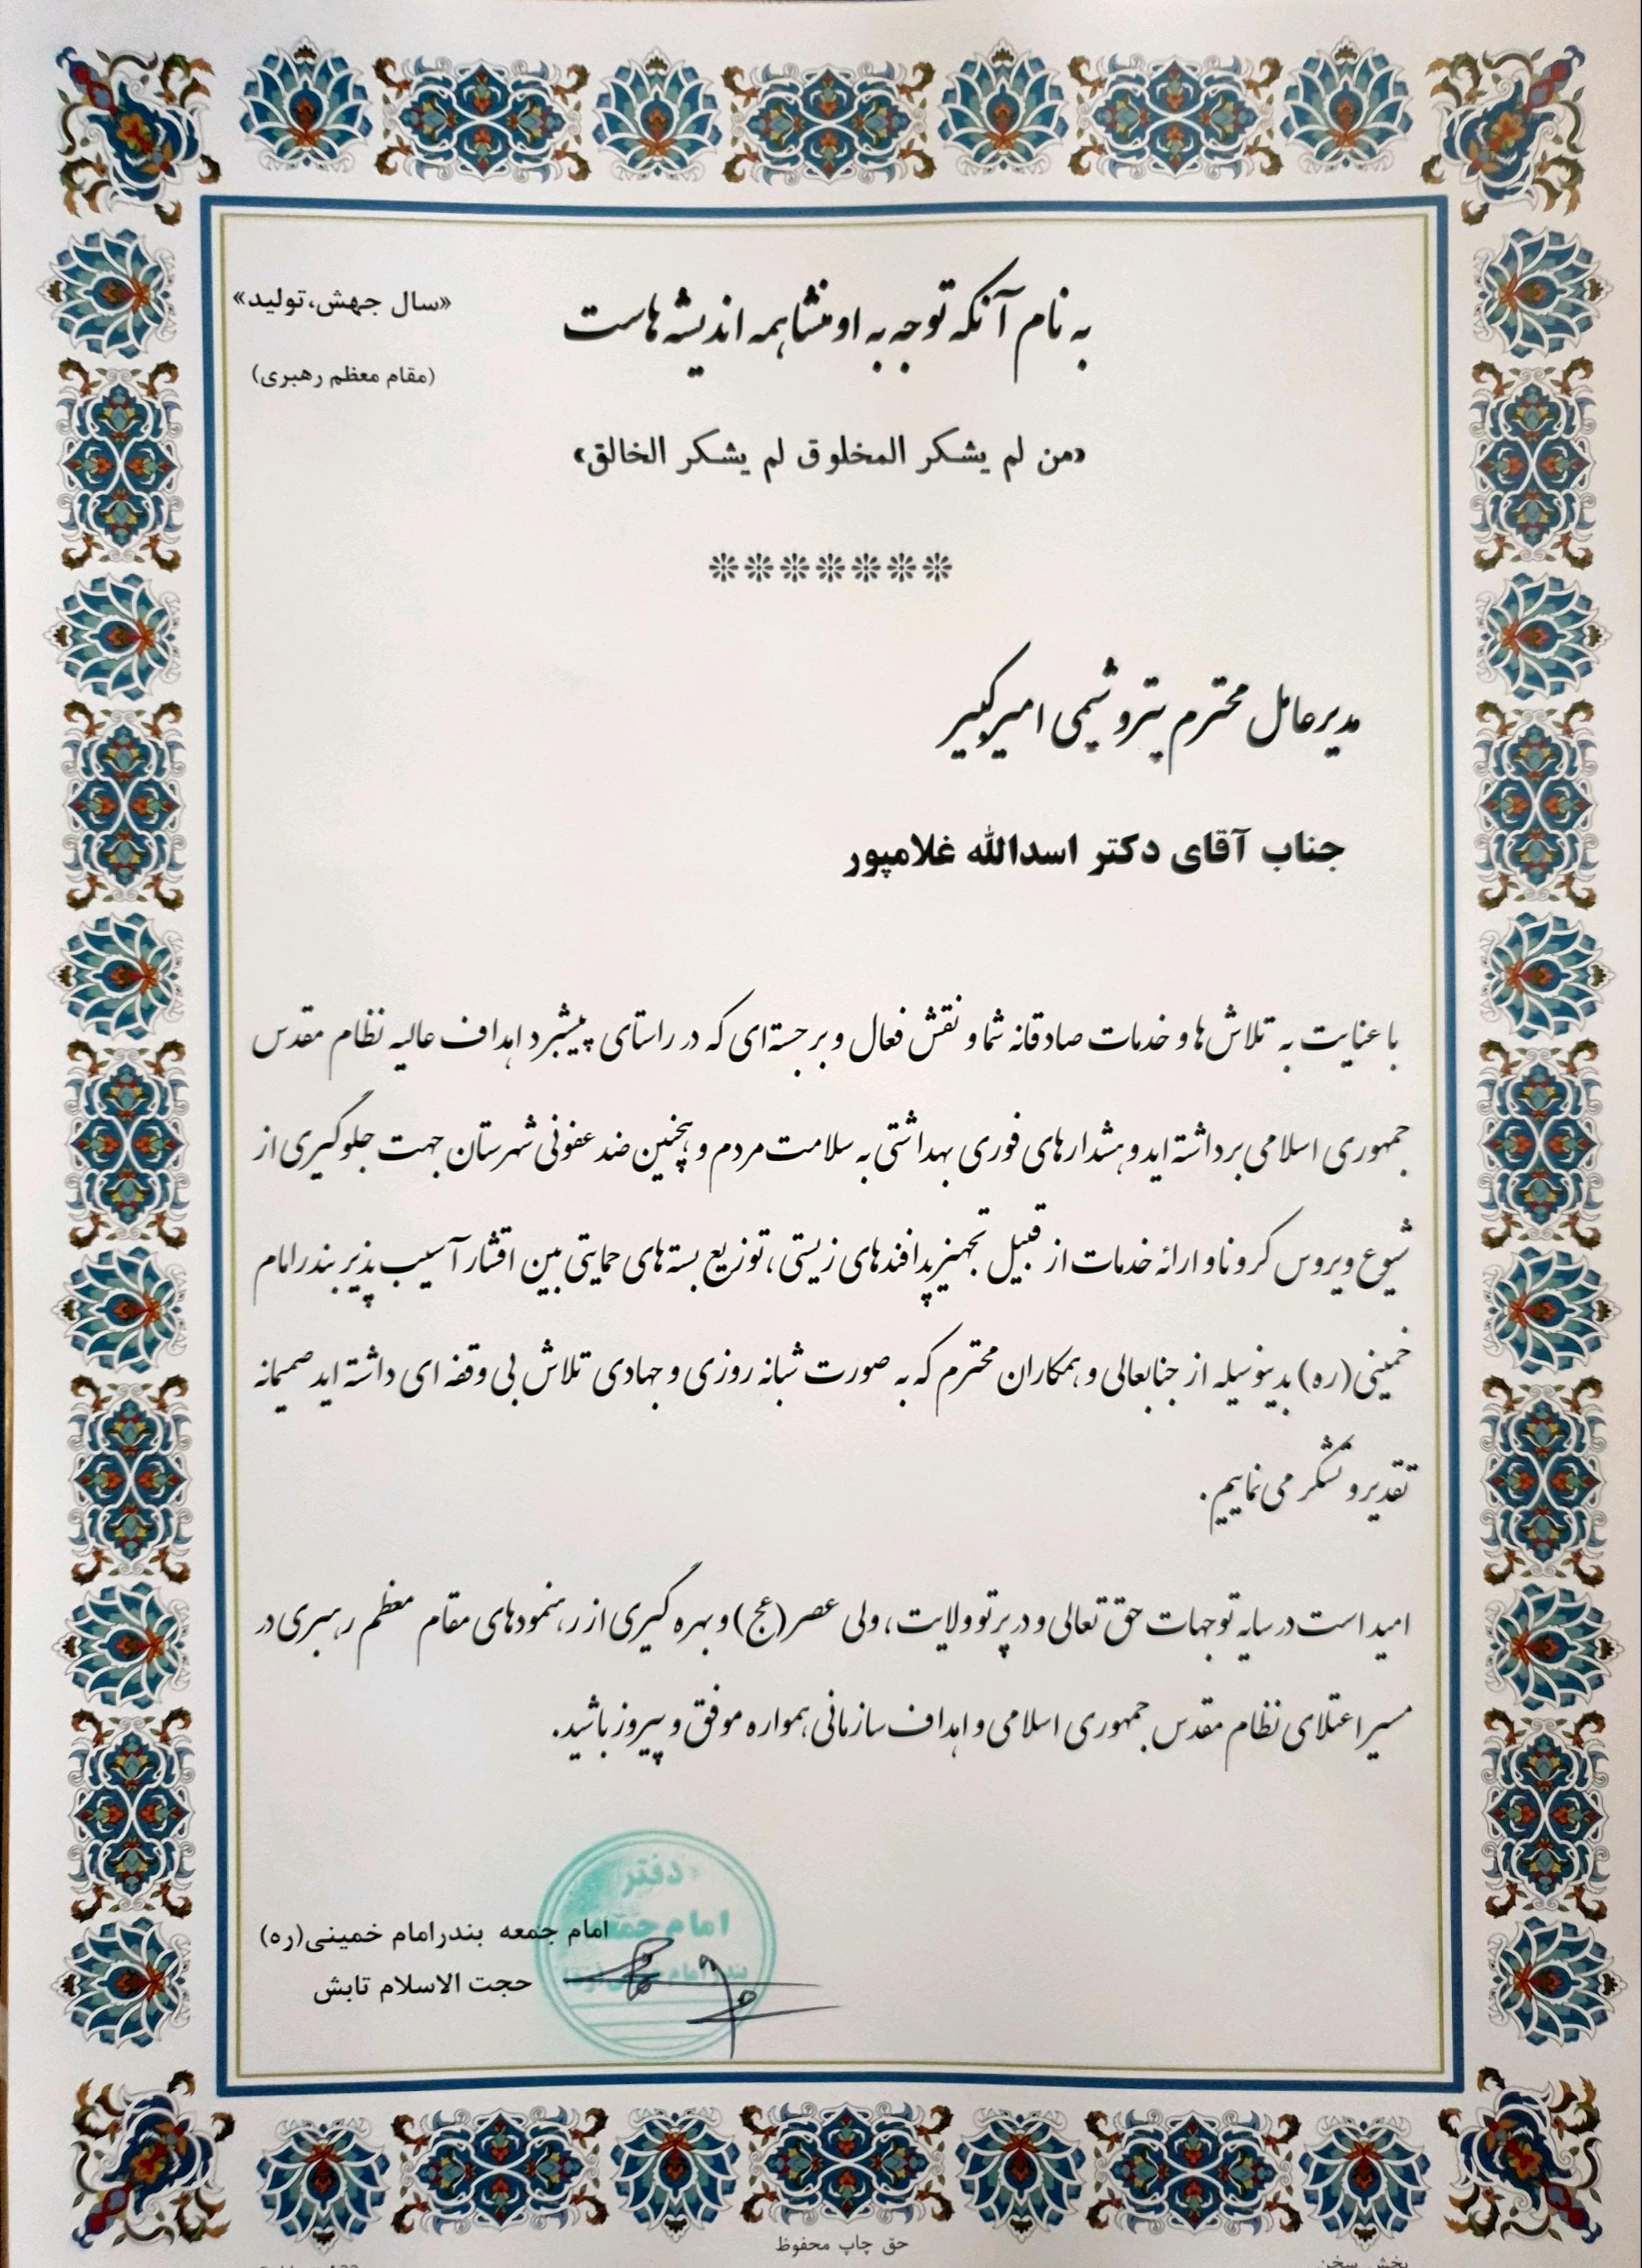 به نام آنکه توجه به او منشا همه اندیشه هاست
«سال جهش،تولید»
(مقام معظم رهبری)
«من لم یشکر المخلوق لم یشکر الخالق»
مدیرعامل محترم پتروشیمی امیرکبیر
جناب آقای دکتر اسدالله غلامپور
با عنایت به تلاش‌ها و خدمات صادقانه شما و نقش فعال و برجسته‌ای که در راستای پیشبرد اهداف عالیه نظام مقدس
جمهوری اسلامی برداشته اید و هشدارهای فوری بهداشتی به سلامت مردم و همچنین ضد عفونی شهرستان جهت جلوگیری از
شیوع ویروس کرونا و ارائه خدمات از قبیل تجهیز پدافندهای زیستی، توزیع بسته‌های حمایتی بین اقشار آسیب پذیر بندرامام
خمینی(ره) بدینوسیله از جنابعالی و همکاران محترم که به صورت شبانه روزی و جهادی تلاش بی وقفه ای داشته اید صمیمانه
تقدیر و تشکر می نماییم.
امید است در سایه توجهات حق تعالی و در پرتو ولایت، ولی عصر(عج) و بهره گیری از رهنمودهای مقام معظم رهبری در
مسیر اعتلای نظام مقدس جمهوری اسلامی و اهداف سازمانی همواره موفق و پیروز باشید.
دفتر
امام جمعه
بندرامام
امام جمعه بندرامام خمینی(ره)
حجت الاسلام تابش
حق چاپ محفوظ
پخش سخن